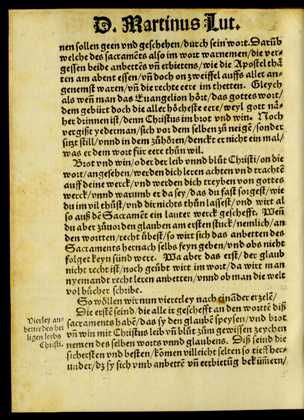 D. Martinus Lut.
nen sollen geen vnd geschehen/ durch sein wort. Darũb
welche des sacramẽts also im wort warnemen/ die ver-
gessen beide anbettẽs vñ erbietens/ wie die Apostel thã
ten am abent essen/ vñ doch on zweiffel auffs aller an-
genemst waren/ vñ die rechte eere im thetten. Gleych
als wen man das Euangelion hört/ das gottes wort/
dem gebürt doch die aller höheste eere/ weyl gott nã-
her drinnen ist/ denn Christus im brot vnd win. Noch
vergißt yederman/ sich vor dem selben zů neigẽ/ sonder
sigt still/ vnnd in dem zůhörẽ/ denckt er nicht ein mal/
was er dem wort für eere thůn wil.
Brot vnd win/ oder der leib vnnd blůt Christi/ on die
wort/ angesehen/ werden dich leren achten vnd trachtẽ
auff deine werck/ vnd werden dich treyben von gottes
werck/ vnnd warumb er da sey/ das du fast sorgest/ wie
du im vil thůst/ vnd dir nichts thůn lassest/ vnd wirt al
so auß dẽ Sacramẽt ein lauter werck geschefft. Weñ
du aber zůuor den glauben am ersten stuck/ nemlich/ an
den wortten/ recht übest/ so wirt sich das anbetten des
Sacraments hernach selbs feyn geben/ vnd obs nicht
folget keyn sünd were. Wa aber das erst/ der glaub
nicht recht ist/ noch geübt wirt im wort/ da wirt man
nyemandt recht leren anbetten/ vnnd ob man die welt
vol bücher schribe.
So wöllen wir nun viererley nach einãder erzelẽ/
Die erste seind/ die all ir geschefft an den wortẽ diß
sacraments haben/ das sy den glaubẽ speysen/ vnd brot
vñ win mit Christus leib vñ blůt zům gewissen zeychen
nemen des selben worts vnnd glaubens. Diß seind die
sichersten vnd besten/ kömen villeicht selten so tieff her-
under/ dz sy sich vmb anbettẽ vñ erbietũg bekümern/
Vierley an-
bettẽ des hei
ligen leibs
Christi.